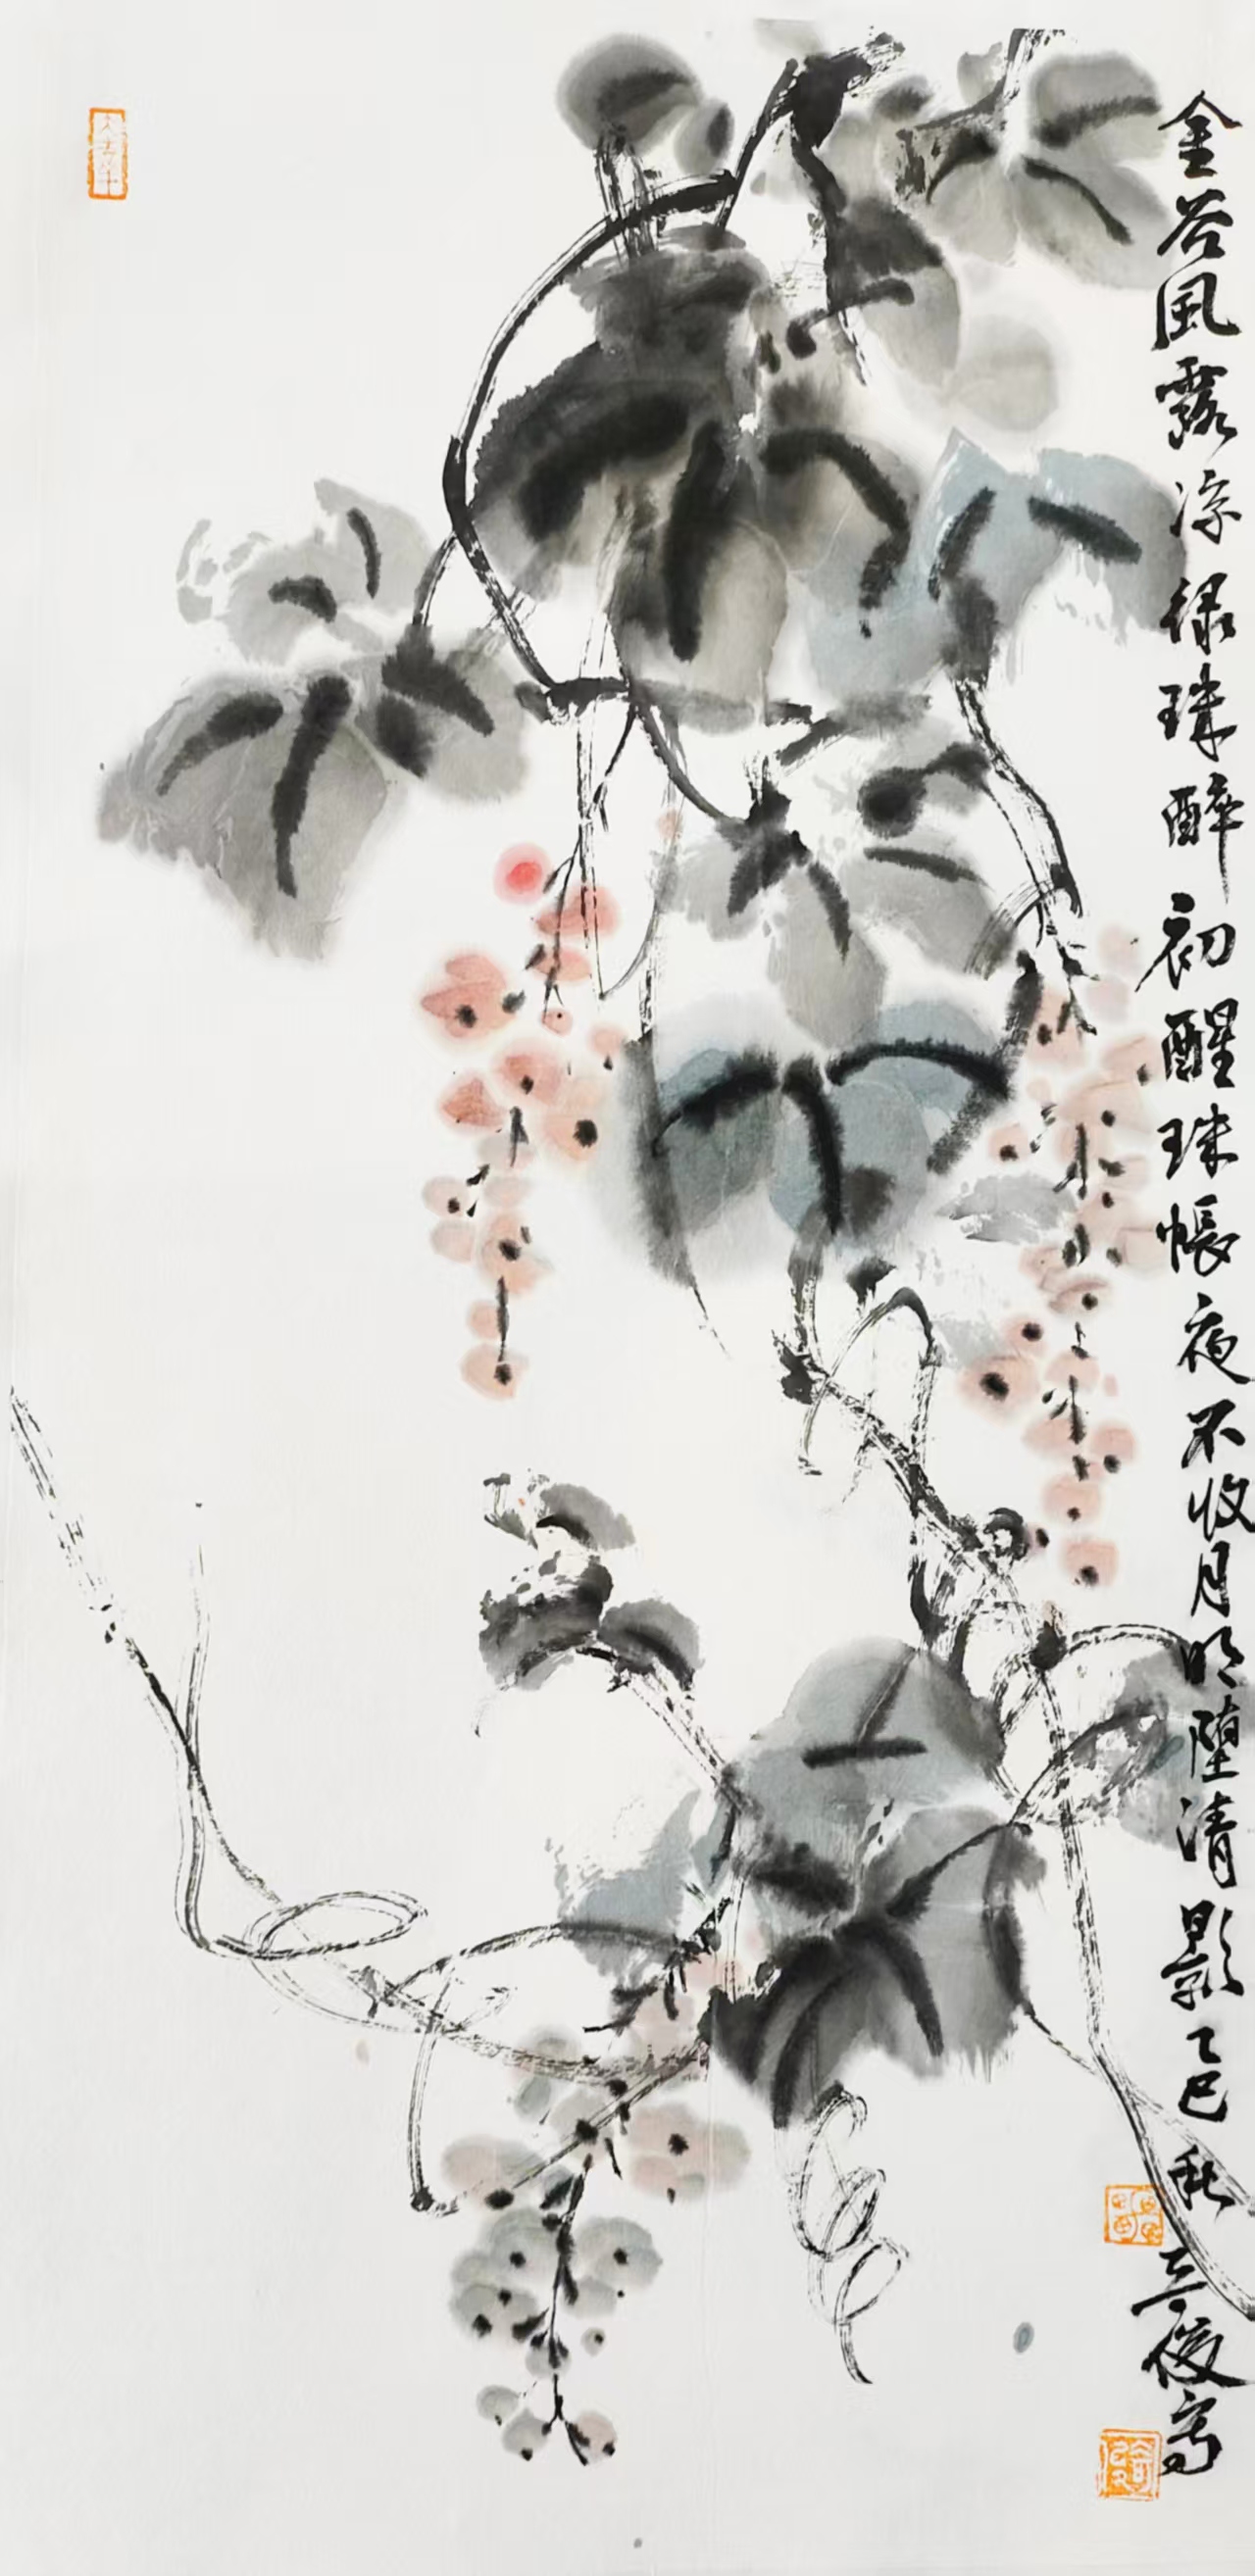 金谷風露涼绿珠醉初醒珠帳夜不收月明堕清影乙巳秋奇俊寫